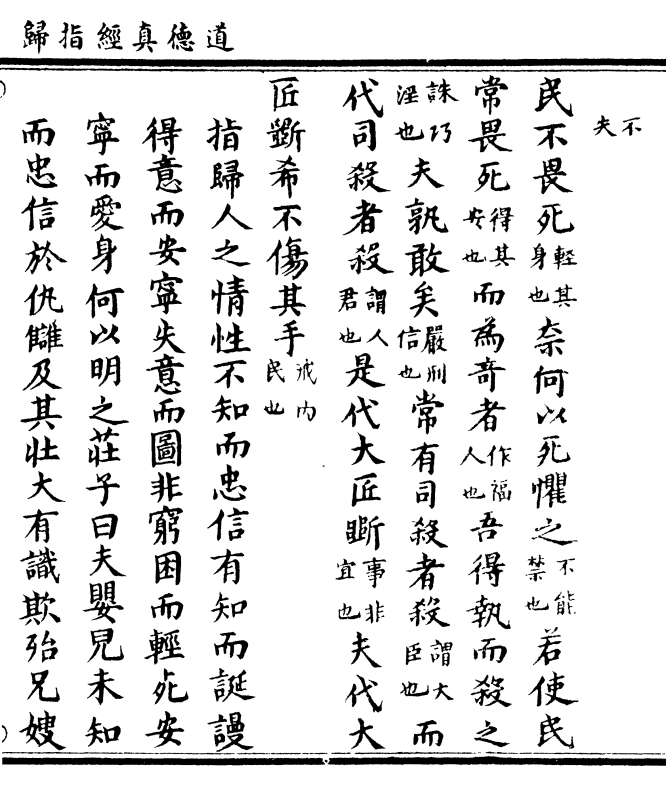 道德真經指歸
不夫
民不畏死輕其身也奈何以死懼之不能禁也若使民
常畏死得其安也而為竒者作福人也吾得執而殺之
誅巧淫也夫孰敢矣嚴刑信也常有司殺者殺謂大臣也而
代司殺者殺謂人君也是代大匠斲事非宜也夫代大
匠斲希不傷其手戒内民也
指歸人之情性不知而忠信有知而誕謾
得意而安寧失意而圖非窮困而輕死安
寧而愛身何以明之莊子曰夫嬰兒未知
而忠信於仇讎及其壯大有識欺殆兄嫂